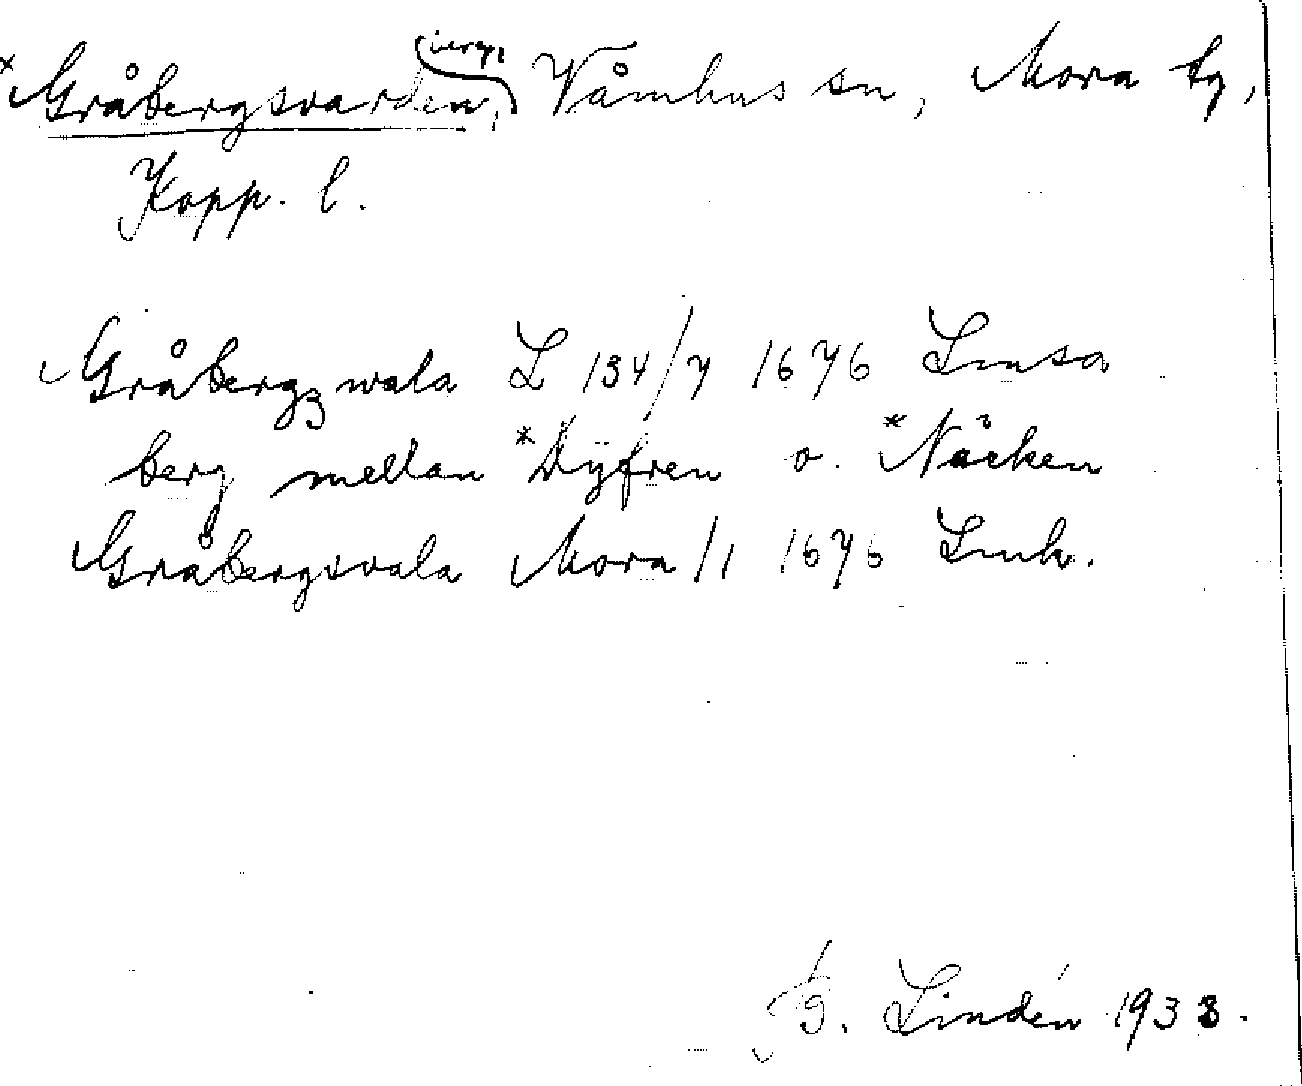 *Gråbergsvarden, (berg) Våmhus sn, Mora tg,
Kopp. l.
Gråbergz wala L 134/7 1676 Lmsa
berg mellan *Dÿfren o. *Näcken
Gråbergsvala Mora/1 1676 Lmk.
G. Lindén 1933.